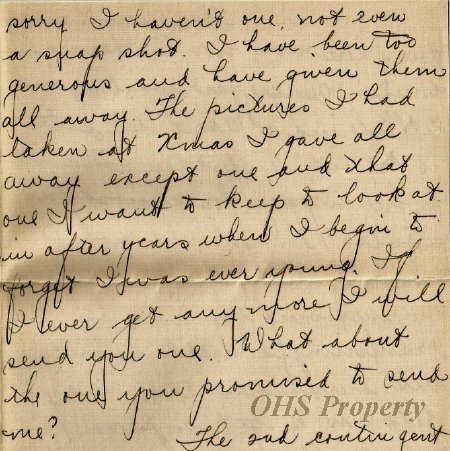 sorry I haven't one, not even
a snap shot. I have been too
generous and have given them
all away. The pictures I had
taken at Xmas I gave all
away except one and that
one I want to keep to look at
in after years when I begin to
forget I was ever young. If
I ever get any more I will
send you one. What about
the one you promised to send
me?
OHS Property
The 2nd contingent